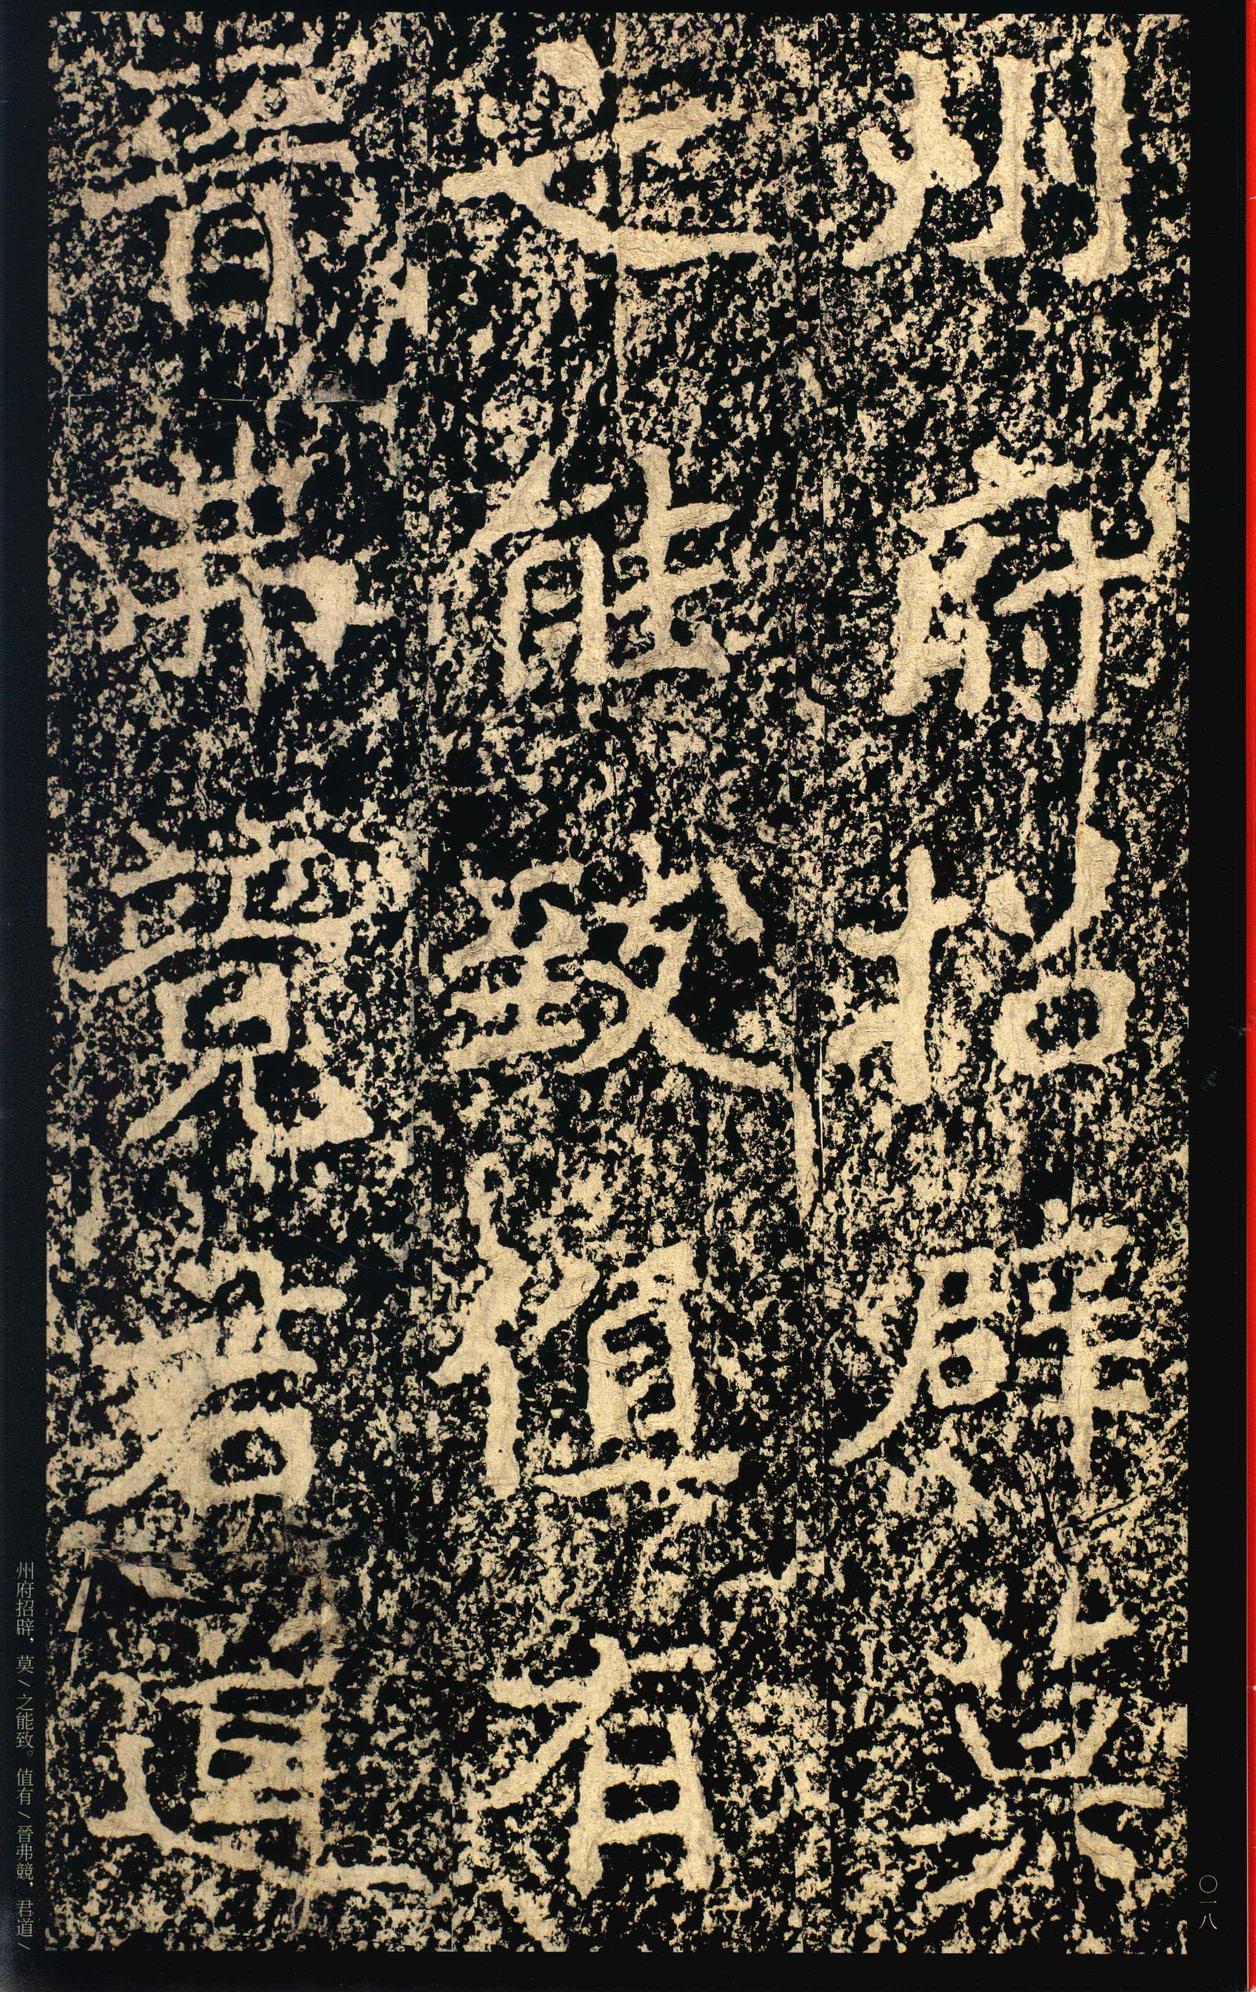 州府招辟莫
之能致值有
晉弗競君道
州府招辟，莫/之能致。值有/晉弗競，君道/
〇一八